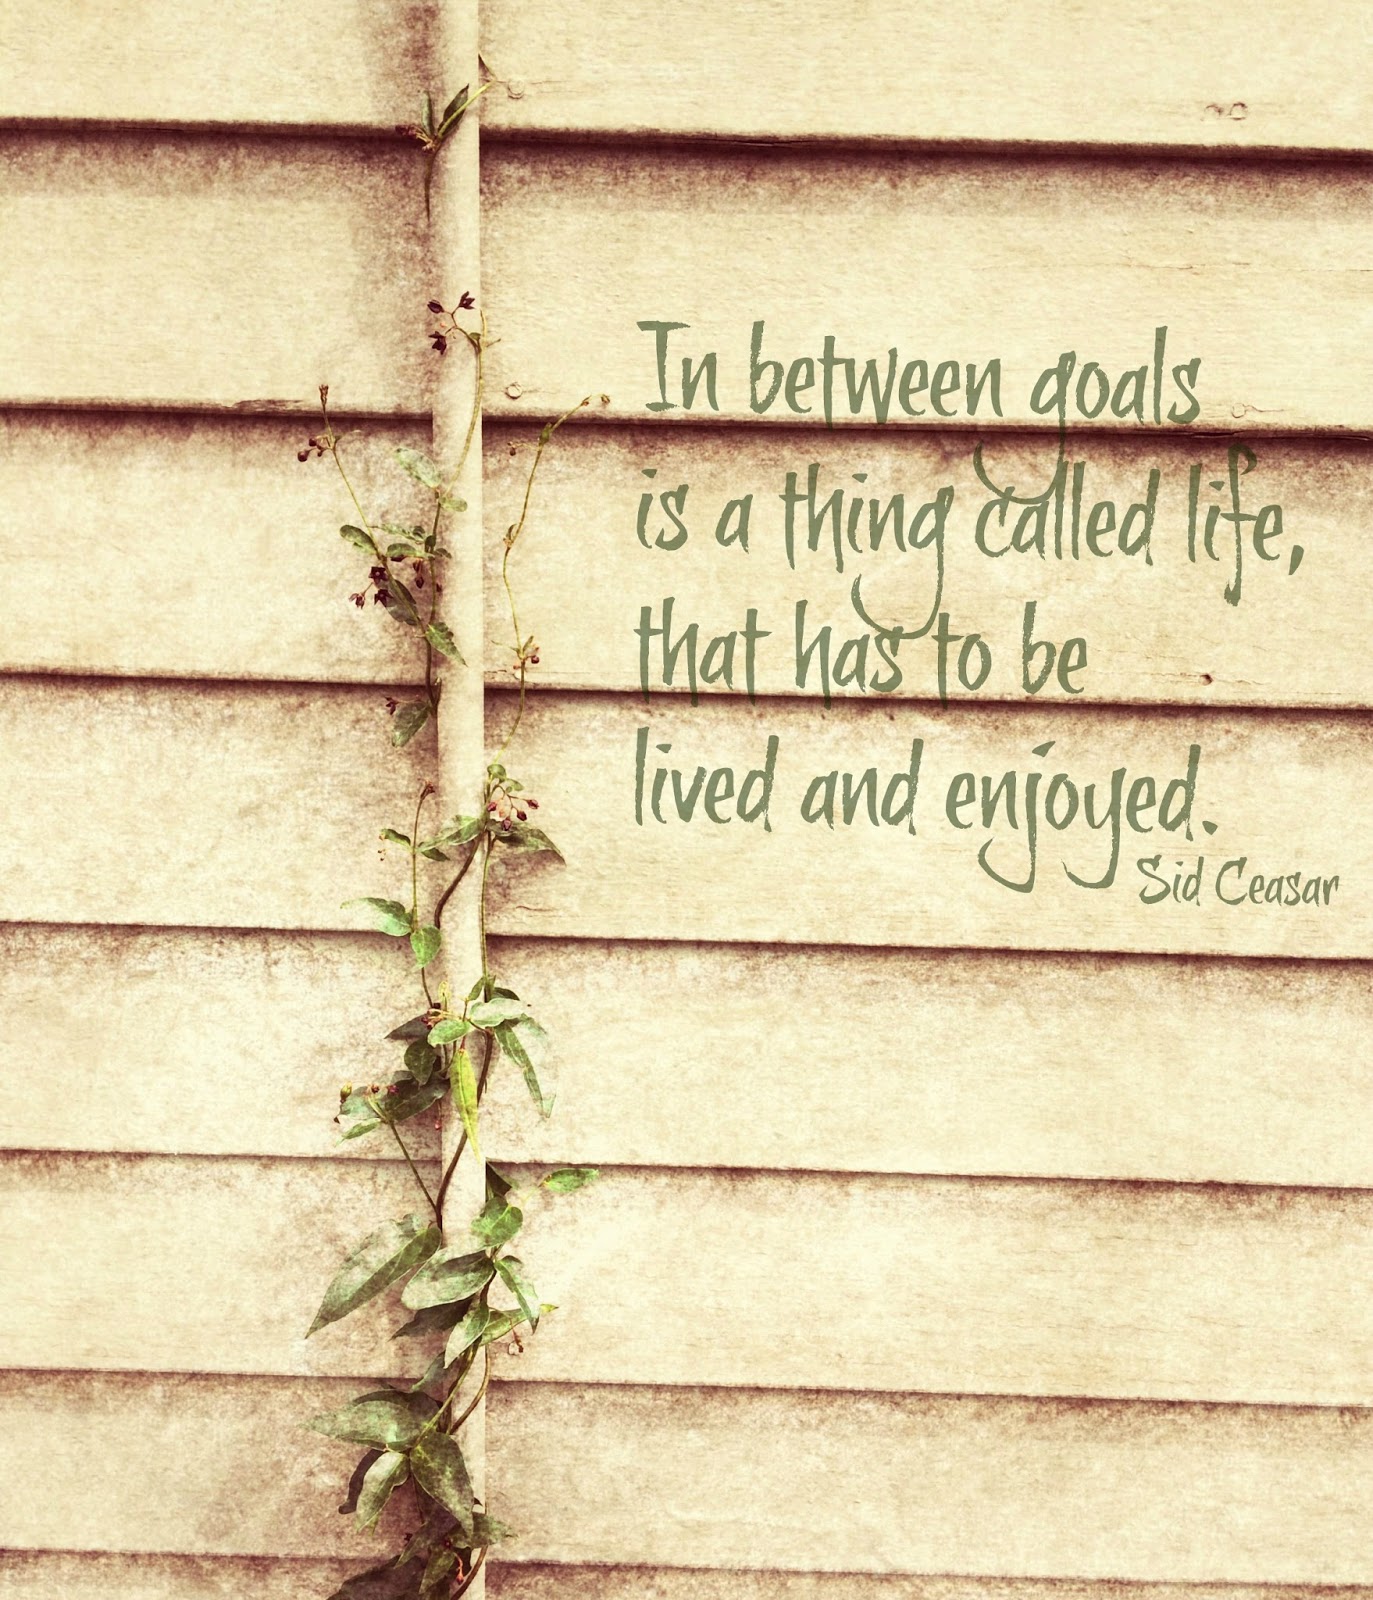 In between goals
is a thing called life,
that has to be
lived and enjoyed.
Sid Ceasar